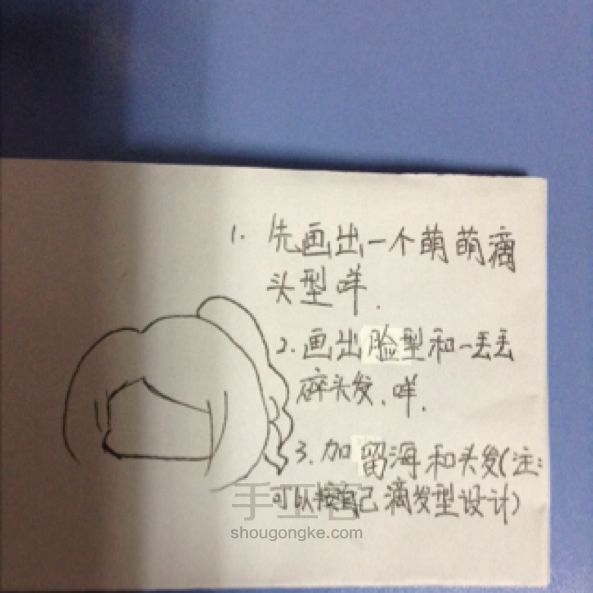 1. 先画出一个萌萌滴
头型咩.
2. 画出脸型和一丢丢
碎头发.咩.
3. 加留海和头发(注:
可以按自己滴发型设计)
手工客
shougongke.com